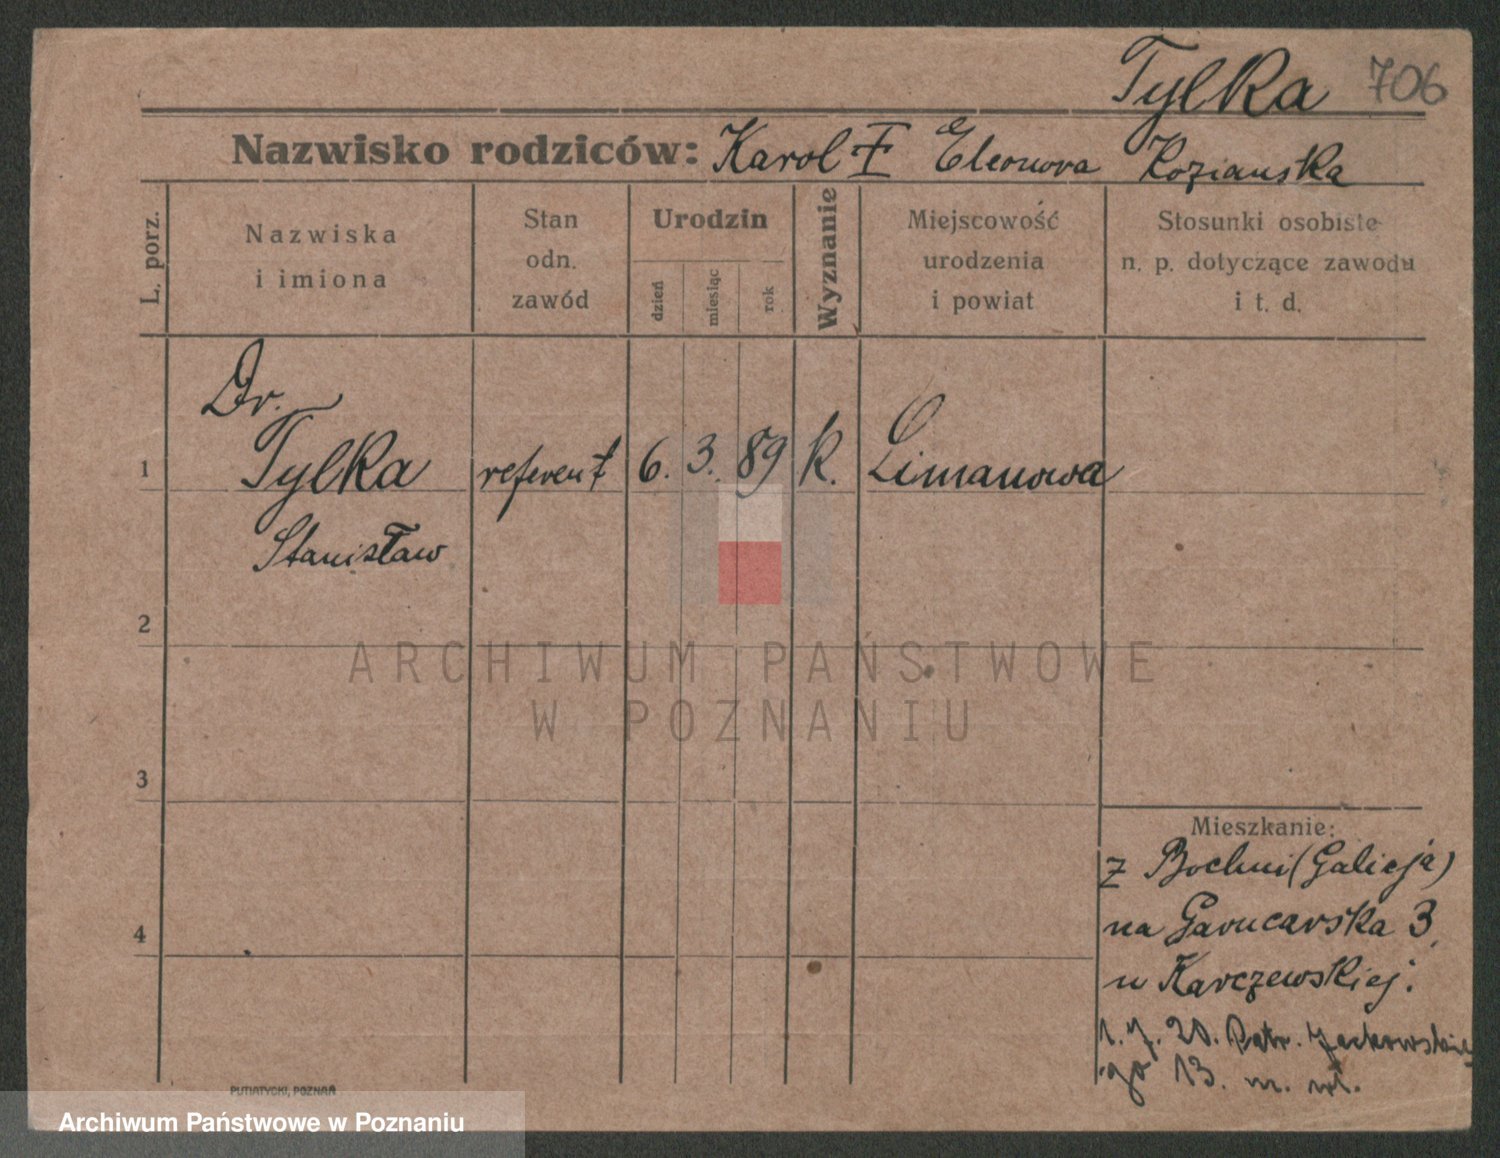 Tylka 706
Nazwisko rodziców: Karol Eleonora Kozianska
L. porz.
Nazwiska
i imiona
Stan
odn.
zawód
Urodzin
dzień
miesiąc
rok
Wyznanie
Miejscowość
urodzenia
i powiat
Stosunki osobiste
n. p. dotyczące zawodu
i t. d.
Dr.
1 Tylka referent 6. 3. 89 k. Limanowa
Stanisław
2
ARCHIWUM PAŃSTWOWE
W POZNANIU
3
Mieszkanie:
z Bochni (Galicja)
na Garncarska 3
u Karczewskiej.
4
1. 7. 20. Patr. Jackowskie
go 13. m. wł.
PUTIATYCKI, POZNAŃ
Archiwum Państwowe w Poznaniu